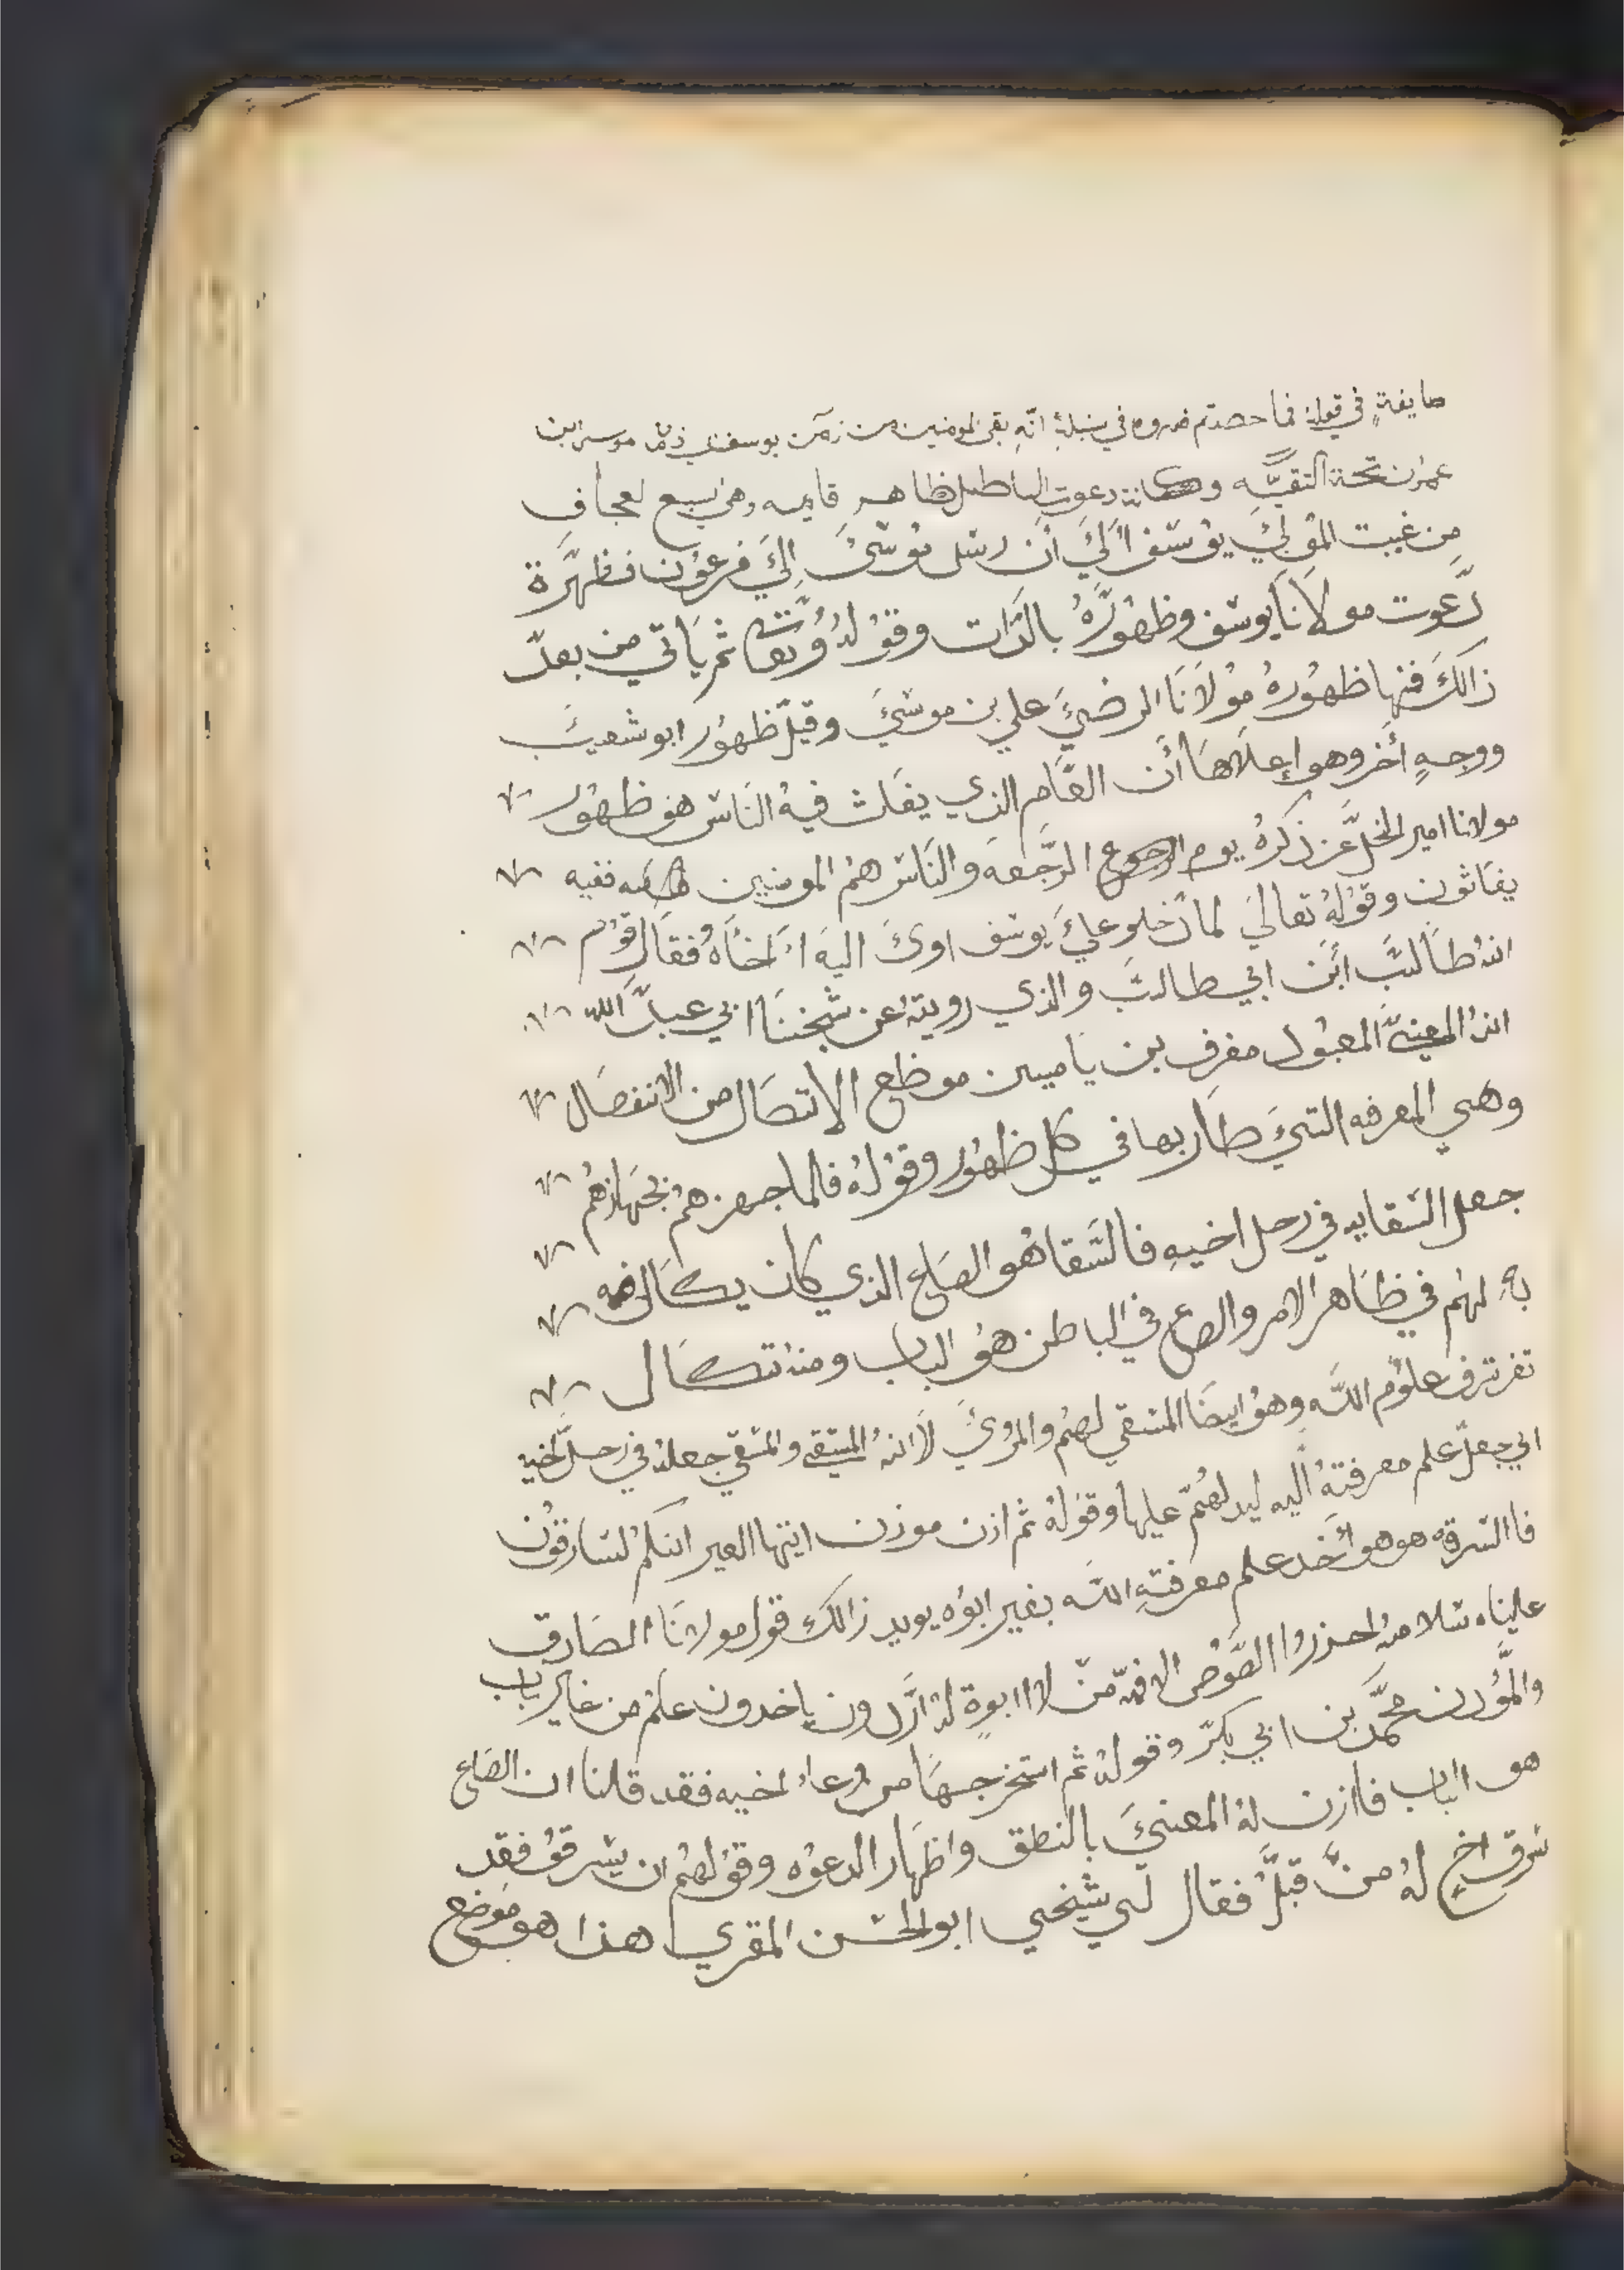 طايفة في قوله فما حصدتم فدروه في سنبله انه بقى المومنين من زمن يوسف الي موسى ابن
عمرن تحت التقيه وكانت دعوت الباطل ظاهر قايمه وهي سبع لعجاف
من غيبت المولى يوسف الى أن رسل موسى إلى فرعون فظهرة
دعوت مولانا يوسف وظهوره بالذات وقوله تعا ثم ياتي من بعد
زالك فمنها ظهوره مولانا الرضي علي بن موسى وقيل ظهور ابو شعيب
ووجه أخر وهو إعلاها أن العام الذي يغاث فيه الناس هو ظهور
مولانا امير النحل عز ذكره يوم الرجعه والناس هم المومنين ففيه
يغاثون وقوله تعالى لما دخلو على يوسف اوى اليه اخاه فقال قوم
انه طالب ابن ابي طالب والذي رويته عن شيخنا ابي عبد الله
انه المعنى المعبود مفرف بن ياميين موظع الاتصال من الانفصال
وهي المعرفه التي طار بها في كل ظهور وقوله فالما جهزهم بجهازهم
جعل السقايه في رحل اخيه فالسقا هو الصاع الذي كان يكال
به لهم في ظاهر الامر والصع في الباطن هو الباب ومنه تكال
تغرترف علوم الله وهو ايضا المسقي لهم والمروي لانه المسقي والمسقي جعله في رحل اخيه
اي جعل علم معرفته اليه ليدلهم عليها وقوله ثم ازن موزن ايتها العير انكم لسارقون
فا السرقه هو هو أخد علم معرفته الله بغير ابوه يويد زالك قول مولانا الصادق
علينا سلامه احزروا الصوص الا فمن لا ابوة له ازدون ياخدون علم من غاير باب
والمؤدن محمد بن ابي بكر وقوله ثم استخرجها من وعاء اخيه فقد قلنا ان الصاع
هو الباب فاازن له المعنى بالنطق واظهار الدعوه وقولهم ان يسرقو فقد
سرق اخ له من قبل فقال لي شيخي ابو الحسن المقري هذا هو موضع